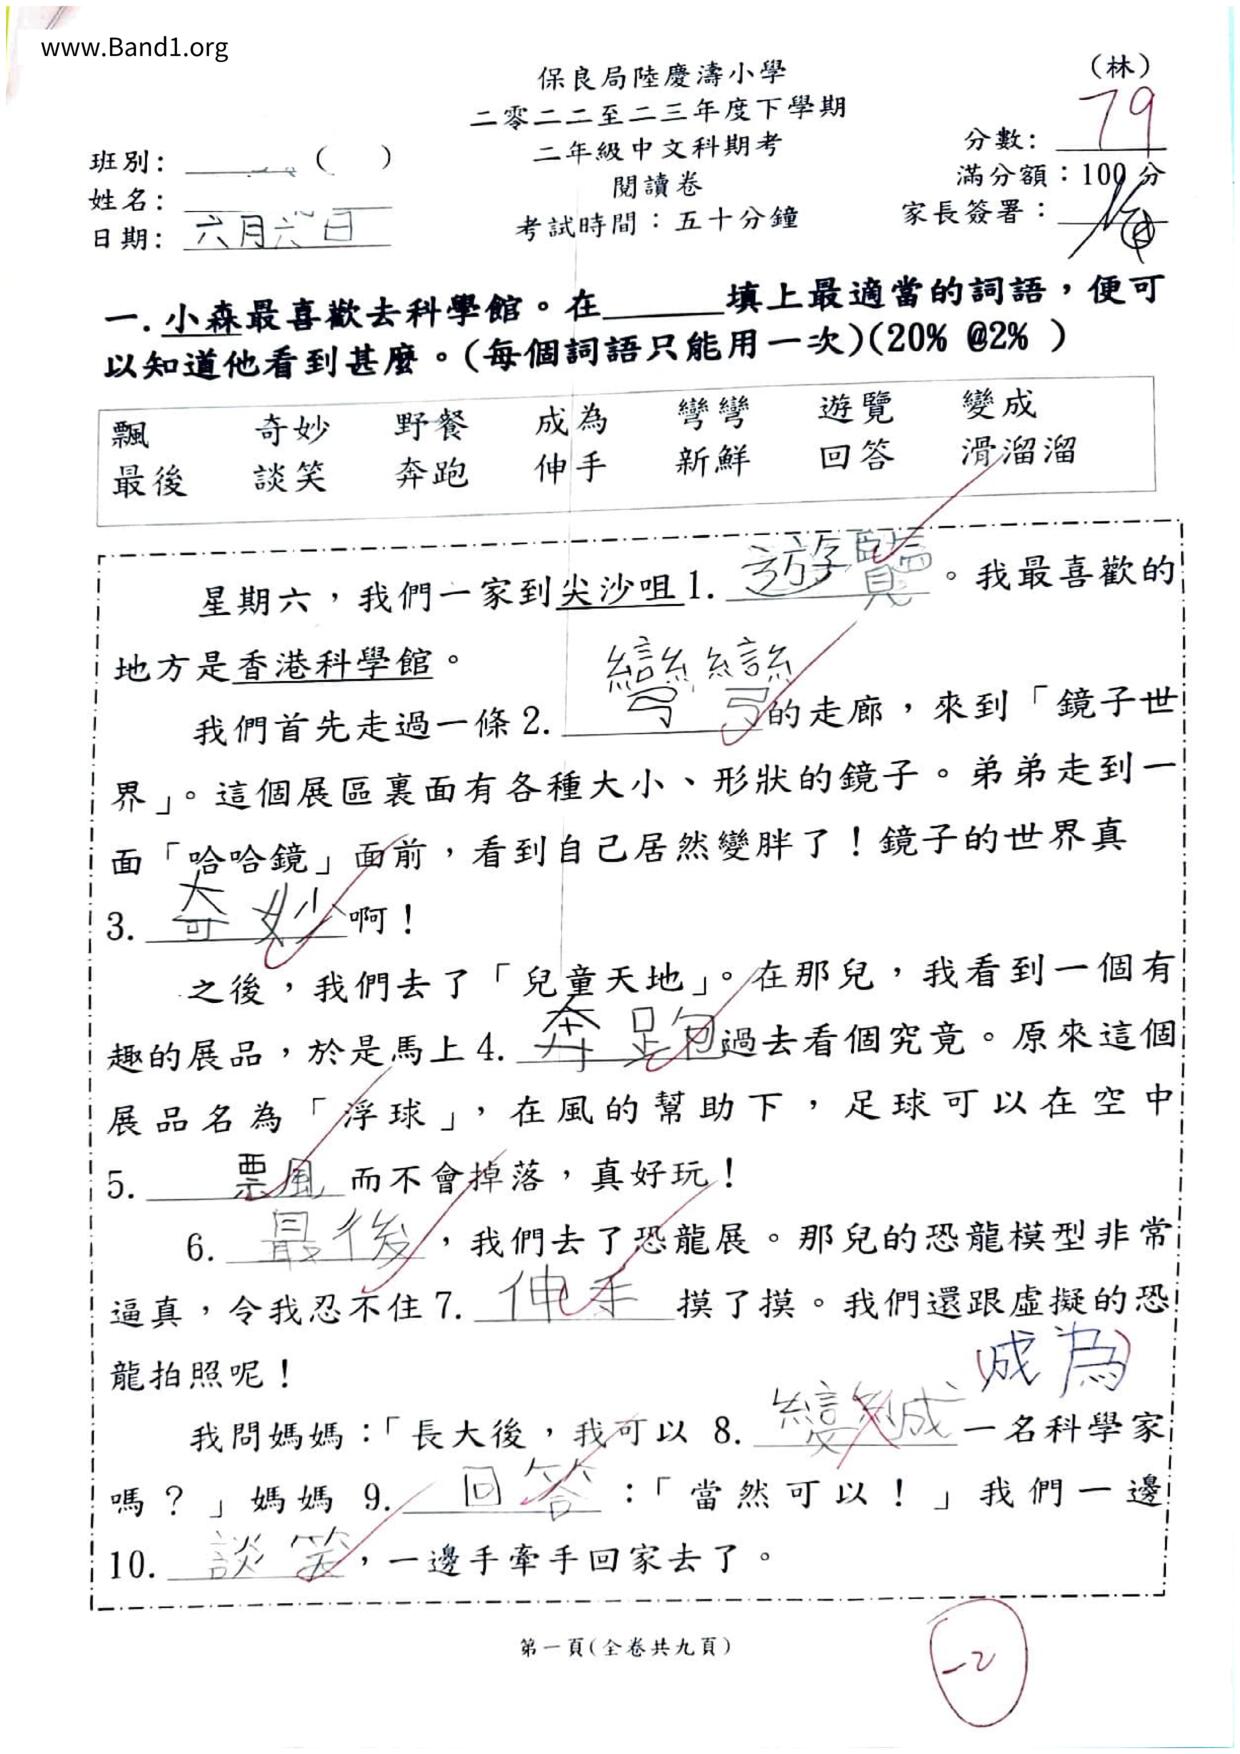 www.Band1.org
(林)
保良局陸慶濤小學
二零二二至二三年度下學期
二年級中文科期考
閱讀卷
考試時間：五十分鐘
班別：( )
姓名：
日期：六月六日
分數：79
滿分額：100分
家長簽署：
一.小森最喜歡去科學館。在______填上最適當的詞語，便可
以知道他看到甚麼。(每個詞語只能用一次)(20% @2% )
飄 奇妙 野餐 成為 彎彎 遊覽 變成
最後 談笑 奔跑 伸手 新鮮 回答 滑溜溜
星期六，我們一家到尖沙咀1. 遊覽。我最喜歡的
地方是香港科學館。
我們首先走過一條2. 彎彎的走廊，來到「鏡子世
界」。這個展區裏面有各種大小、形狀的鏡子。弟弟走到一
面「哈哈鏡」面前，看到自己居然變胖了！鏡子的世界真
3. 奇妙啊！
之後，我們去了「兒童天地」。在那兒，我看到一個有
趣的展品，於是馬上4. 奔跑過去看個究竟。原來這個
展品名為「浮球」，在風的幫助下，足球可以在空中
5. 飄而不會掉落，真好玩！
6. 最後，我們去了恐龍展。那兒的恐龍模型非常
逼真，令我忍不住7. 伸手摸了摸。我們還跟虛擬的恐
龍拍照呢！
(成為)
我問媽媽：「長大後，我可以 8. 變成一名科學家
嗎？」媽媽 9. 回答：「當然可以！」我們一邊
10. 談笑，一邊手牽手回家去了。
第一頁(全卷共九頁)
-2